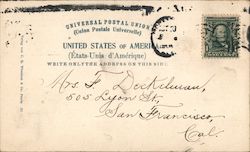 UNIVERSAL POSTAL UNION
(Union Postale Universelle)
UNITED STATES OF AMERICA
(États-Unis d'Amérique)
WRITE ONLY THE ADDRESS ON THIS SIDE.
Mrs. F. Deckelman,
505 Lyon St,
San Francisco,
Cal.